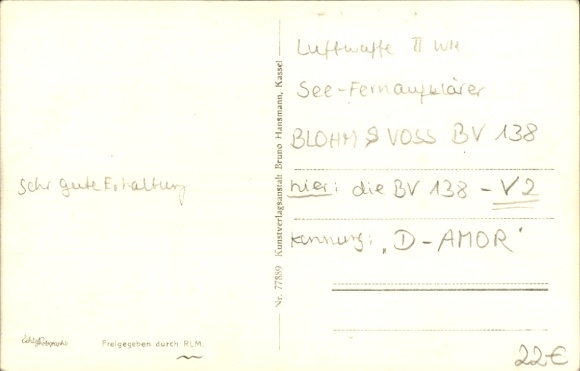 Luftwaffe II WK
See-Fernaufklärer
BLOHM & VOSS BV 138
hier: die BV 138 - V2
Kennung: "D-AMOR"
Sehr gute Erhaltung
Nr. 77889 Kunstverlagsanstalt Bruno Hansmann, Kassel
Echte Photographie
Freigegeben durch RLM.
22€